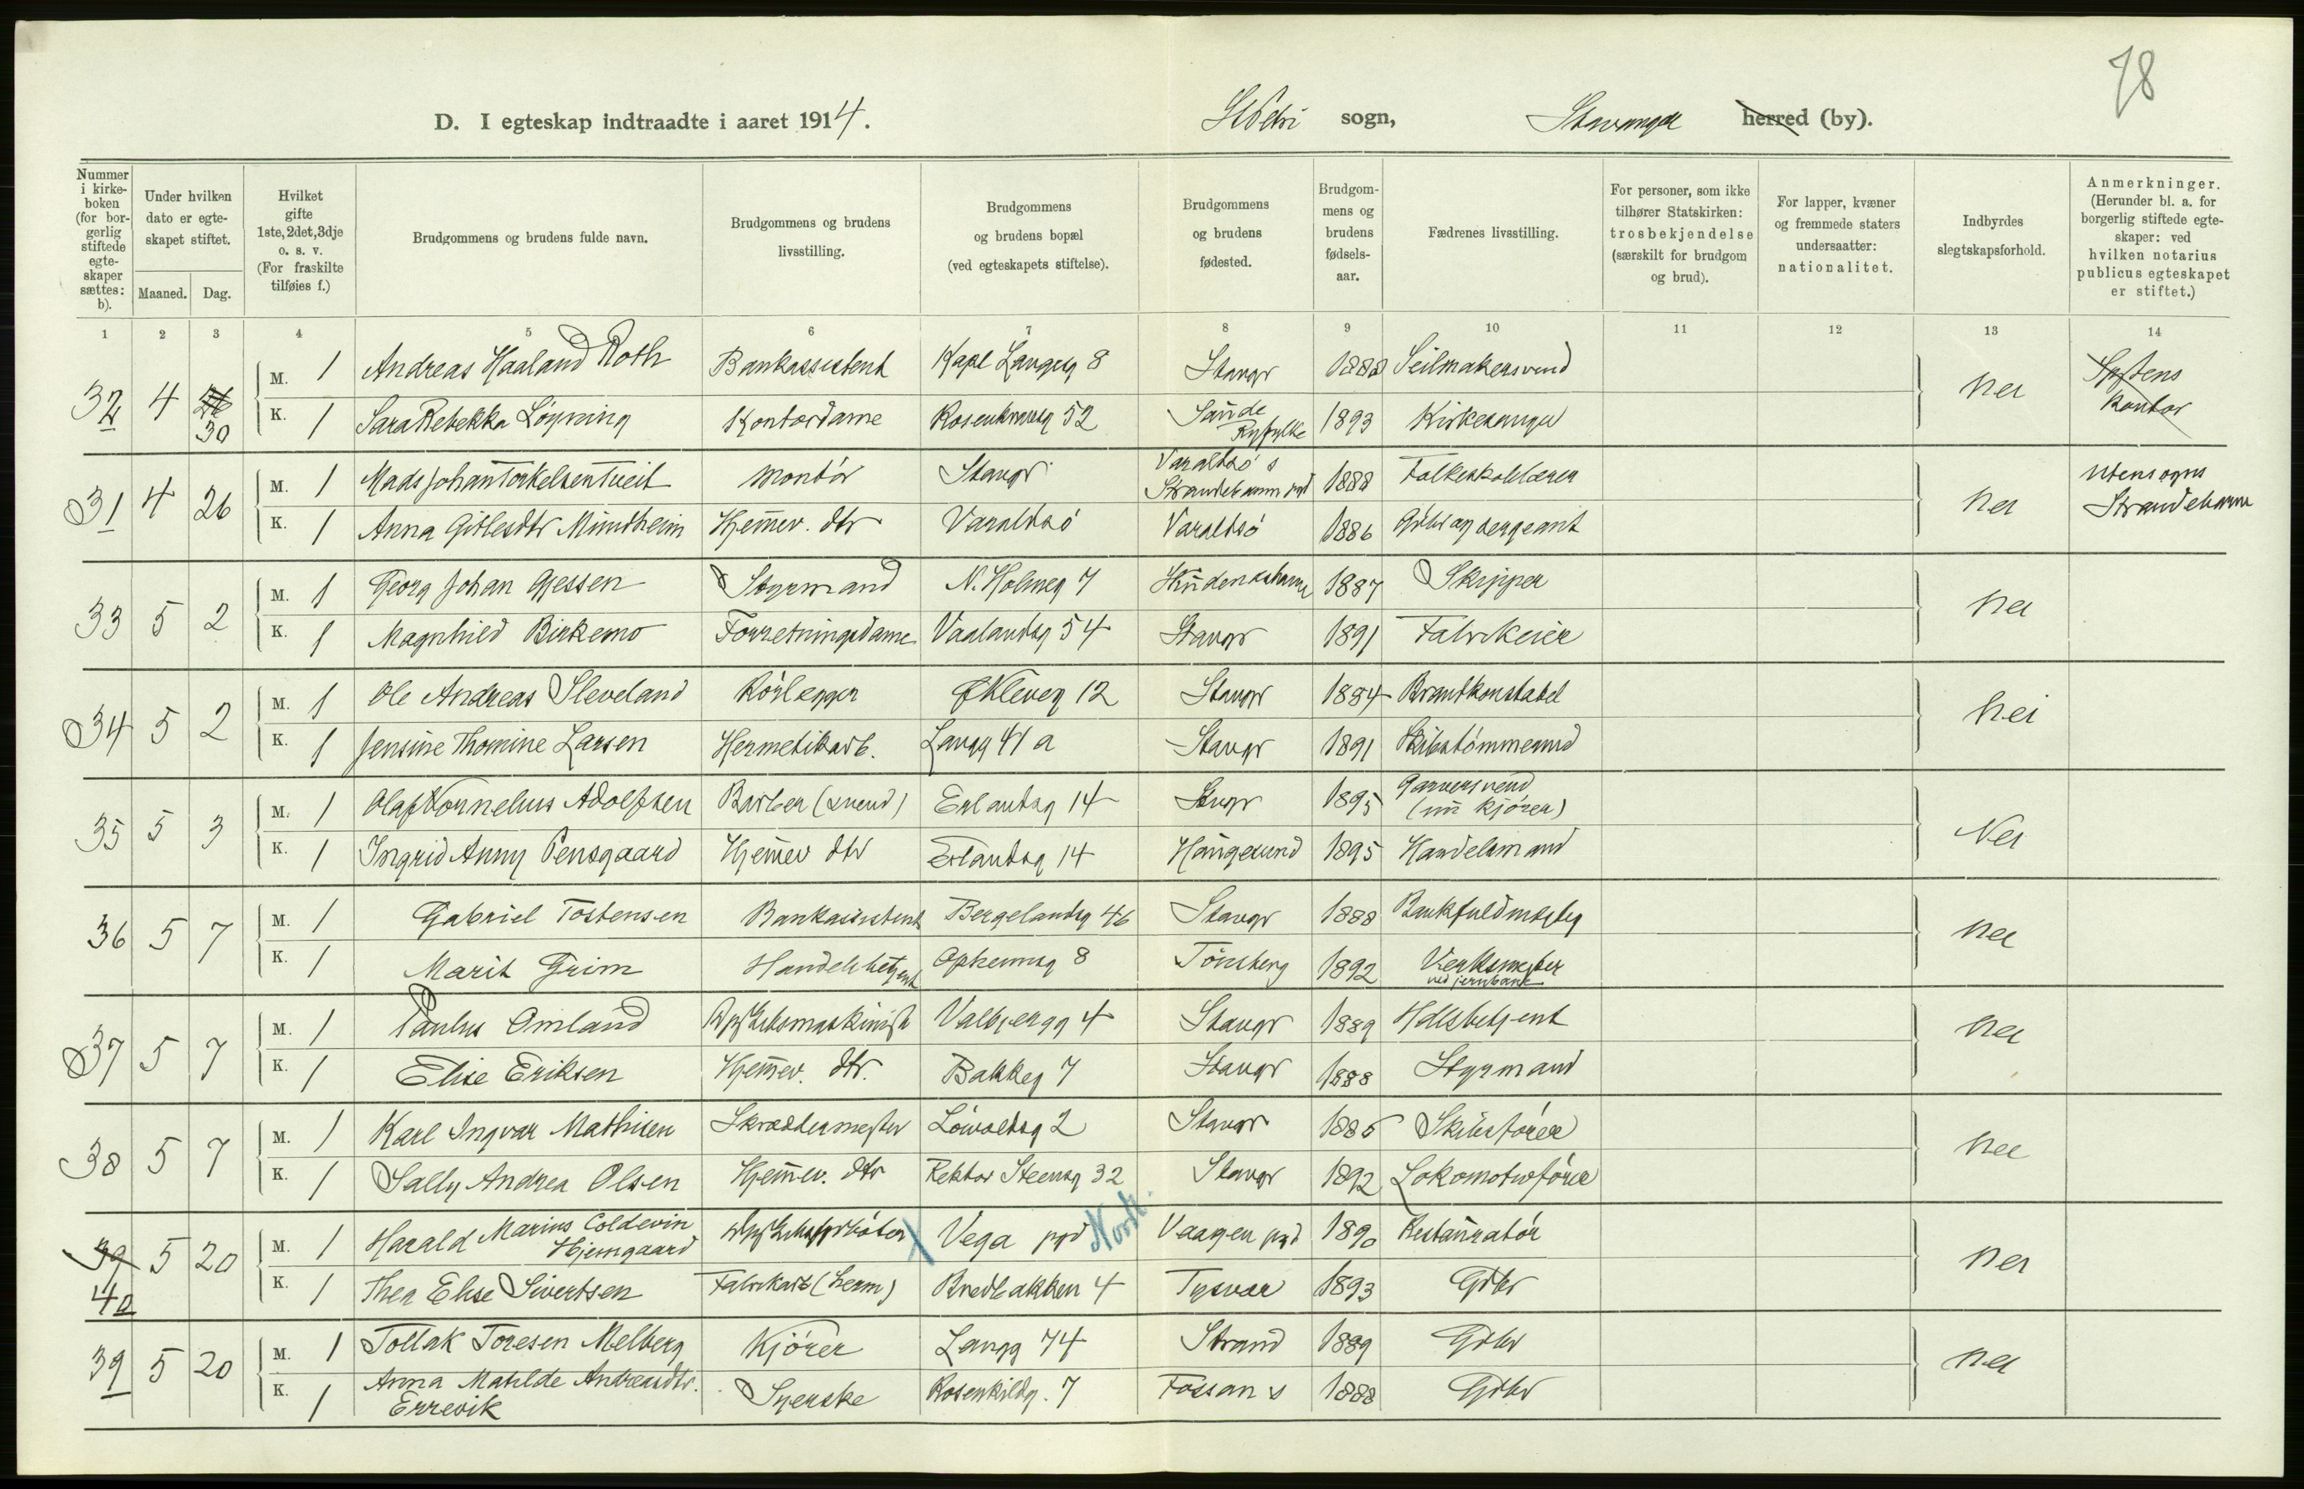 78
D. I egteskap indtraadte i aaret 1914. St. Petri sogn, Stavanger herred (by).
Nummer i kirkeboken (for borgerlig stiftede egteskaper sættes: b).
Under hvilken dato er egteskapet stiftet.
Maaned. Dag.
Hvilket gifte 1ste, 2det, 3dje o. s. v. (For fraskilte tilføies f.)
Brudgommens og brudens fulde navn.
Brudgommens og brudens livsstilling.
Brudgommens og brudens bopæl (ved egteskapets stiftelse).
Brudgommens og brudens fødested.
Brudgommens og brudens fødselsaar.
Fædrenes livsstilling.
For personer, som ikke tilhører Statskirken: trosbekjendelse (særskilt for brudgom og brud).
For lapper, kvæner og fremmede staters undersaatter: nationalitet.
Indbyrdes slegtskapsforhold.
Anmerkninger. (Herunder bl. a. for borgerlig stiftede egteskaper: ved hvilken notarius publicus egteskapet er stiftet.)
1 2 3 4 5 6 7 8 9 10 11 12 13 14
32 4 26 30 M. 1 Andreas Haaland Roth Bankassistent Kapl Langeg 8 Stavgr 1888 Seilmakersvend nei kontor
K. 1 Sara Rebekka Løyning Kontordame Rosenkransg 52 Sande Ryfylke 1893 Kirkesanger
31 4 26 M. 1 Mads Johan Torkelsen Tveit Montør Stavgr Varaldsø s Strandebarm pgd 1888 Folkeskolelærer nei utensogns Strandebarm
K. 1 Anna Gitlesdtr Mundheim Hjemmev. dtr Varaldsø Varaldsø 1886 Gdbr og sergeant
33 5 2 M. 1 Georg Johan Gjessen Styrmand N. Holmeg 7 Skudeneshavn 1887 Skipper nei
K. 1 Magnhild Birkemo Forretningsdame Vaalandsg 54 Stavgr 1891 Fabrikeier
34 5 2 M. 1 Ole Andreas Sleveland Rørlegger Ø Kleveg 12 Stavgr 1884 Brandkonstabel nei
K. 1 Jensine Thomine Larsen Hermetikarb. Langg 41 a Stavgr 1891 Skibstømmermd
35 5 3 M. 1 Olaf Kornelius Adolfsen Barber (svend) Erlandsg 14 Stvgr 1895 Garversvend (nu kjører) Nei
K. 1 Ingrid Anny Pensgaard Hjemmev dtr Erlandsg 14 Haugesund 1895 Handelsmand
36 5 7 M. 1 Gabriel Tostensen Bankassistent Bergelandsg 46 Stavgr 1888 Bankfuldmægtig nei
K. 1 Marit Grim Handelsbetjent 8 Tønsberg 1892 Verksmester ved jernbane
37 5 7 M. 1 Paulus Omland Dpskibsmaskinist Valbjergg 4 Stavgr 1889 Hdlsbetjent nei
K. 1 Elise Eriksen Hjemmev. dtr. Bakkeg 7 Stavgr 1888 Styrmand
38 5 7 M. 1 Karl Ingvar Mathisen Skreddermester Løwoldsg 2 Stavgr 1885 Skibsfører nei
K. 1 Sally Andrea Olsen Hjemmev. dtr Rektor Steensg 32 Stavgr 1892 Lokomotivfører
39 40 5 20 M. 1 Harald Marius Coldevin Hjemgaard X Vega pgd Nordl. Vaagen pgd 1890 Restauratør nei
K. 1 Thea Elise Sivertsen Fabrikarb (herm) Bredbakken 4 Tysvær 1893 Gdbr
39 5 20 M. 1 Tollak Toresen Melberg Kjører Langg 74 Strand 1889 Gdbr nei
K. 1 Anna Matilde Andreasdtr. Errevik Syerske Rosenkildg. 7 Fossan s 1888 Gdbr